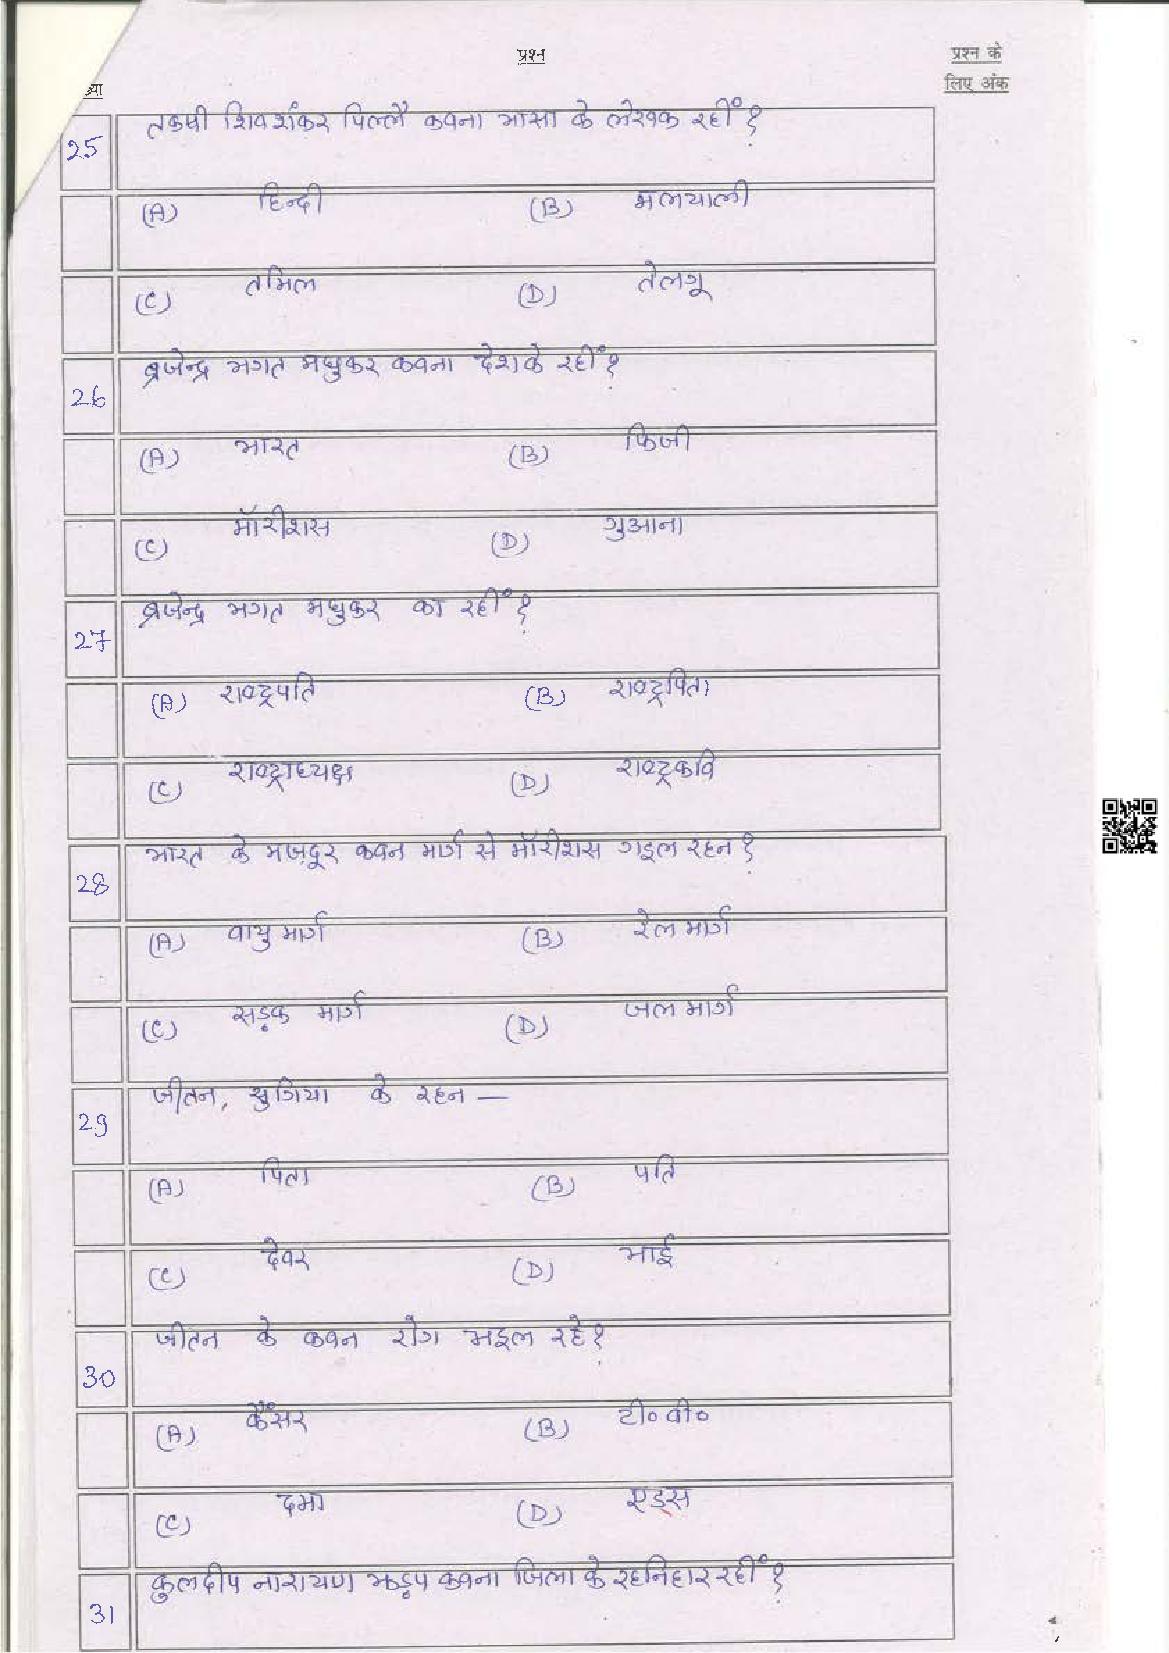 प्रश्न
प्रश्न के
लिए अंक
ख्या
25 तकषी शिवशंकर पिल्लै कवना भासा के लेखक रहीं ?
(A) हिन्दी (B) मलयाली
(C) तमिल (D) तेलगू
26 ब्रजेन्द्र भगत मधुकर कवना देश के रहीं ?
(A) भारत (B) फिजी
(C) मॉरीशस (D) गुआना
27 ब्रजेन्द्र भगत मधुकर का रहीं ?
(A) राष्ट्रपति (B) राष्ट्रपिता
(C) राष्ट्राध्यक्ष (D) राष्ट्रकवि
28 भारत के मजदूर कवन मार्ग से मॉरीशस गइल रहन ?
(A) वायु मार्ग (B) रेल मार्ग
(C) सड़क मार्ग (D) जल मार्ग
29 जीतन, सुगिया के रहन —
(A) पिता (B) पति
(C) देवर (D) भाई
30 जीतन के कवन रोग भइल रहे ?
(A) कैंसर (B) टी० बी०
(C) दमा (D) एड्स
31 कुलदीप नारायण झड़प कवना जिला के रहनिहार रहीं ?